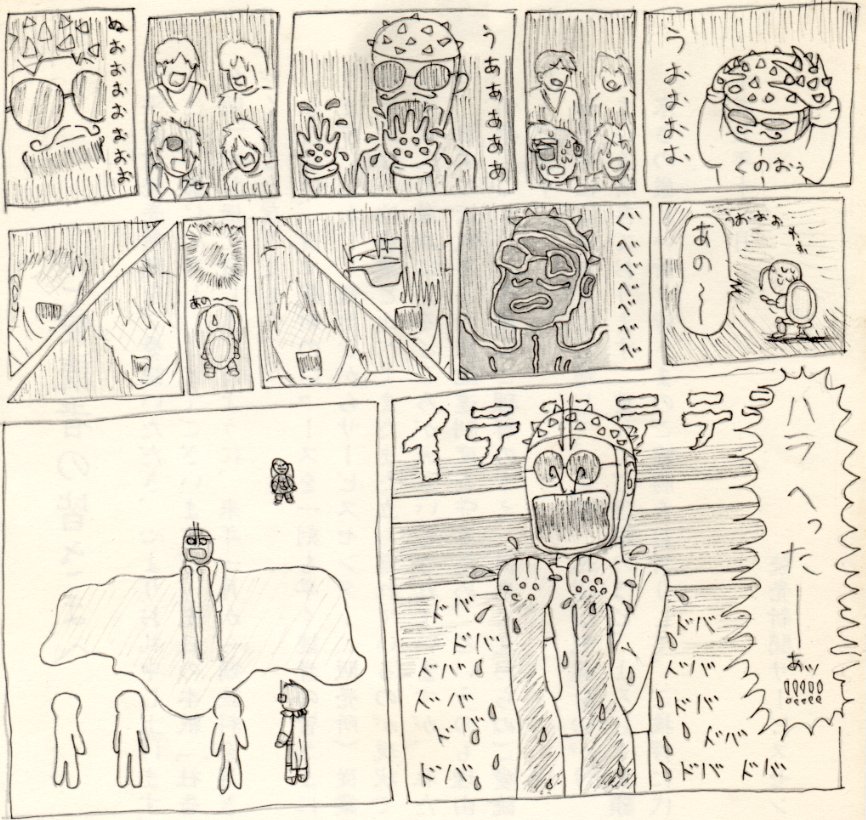 うおおおお
くのおぅ
うああああああ
ぬおおおおおおお
うおぉぉぉぉ
あの〜
ぐべべべべべべ
あの〜
ハラ へったー
あッ
!!!!!
イテテテテ
ドバ
ドバ
ドバ
ドバ
ドバ
ドバ
ドバ
ドバ
ドバ
ドバ
ドバ
ドバ